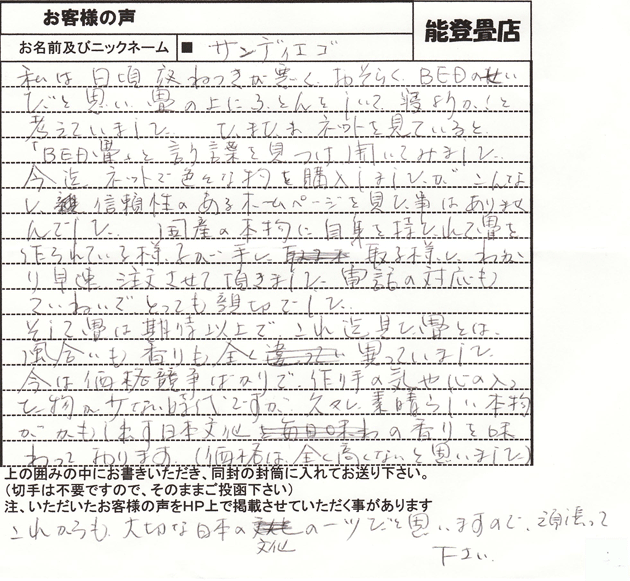 お客様の声
お名前及びニックネーム ■ サンディエゴ
能登畳店
私は日頃寝ねつきが悪く、おそらくBEDのせい
だと思い畳の上にふとんをしいて寝ようか!と
考えていました。たまたまネットを見ていると
「BED畳」と言う言葉を見つけ開いてみました。
今迄ネットで色々な物を購入しましたがこんな
に信頼性のあるホームページを見た事はありませ
んでした。国産の本物に自身を持たれて畳を
作られている様子が手に取る様にわか
り早速注文させて頂きました。電話の対応も
ていねいでとっても親切でした。
そして畳は期待以上で、これ迄見た畳とは、
風合いも香りも全く異っていました。
今は価格競争ばかりで、作り手の気や心の入っ
た物が少ない時代ですが、久々に素晴らしい本物
がかもし出す日本文化の香りを味
わっております。(価格は全く高くないと思いました)
上の囲みの中にお書きいただき、同封の封筒に入れてお送り下さい。
(切手は不要ですので、そのままご投函下さい)
注、いただいたお客様の声をHP上で掲載させていただく事があります
これからも、大切な日本の文化の一ツだと思いますので、頑張って
下さい。